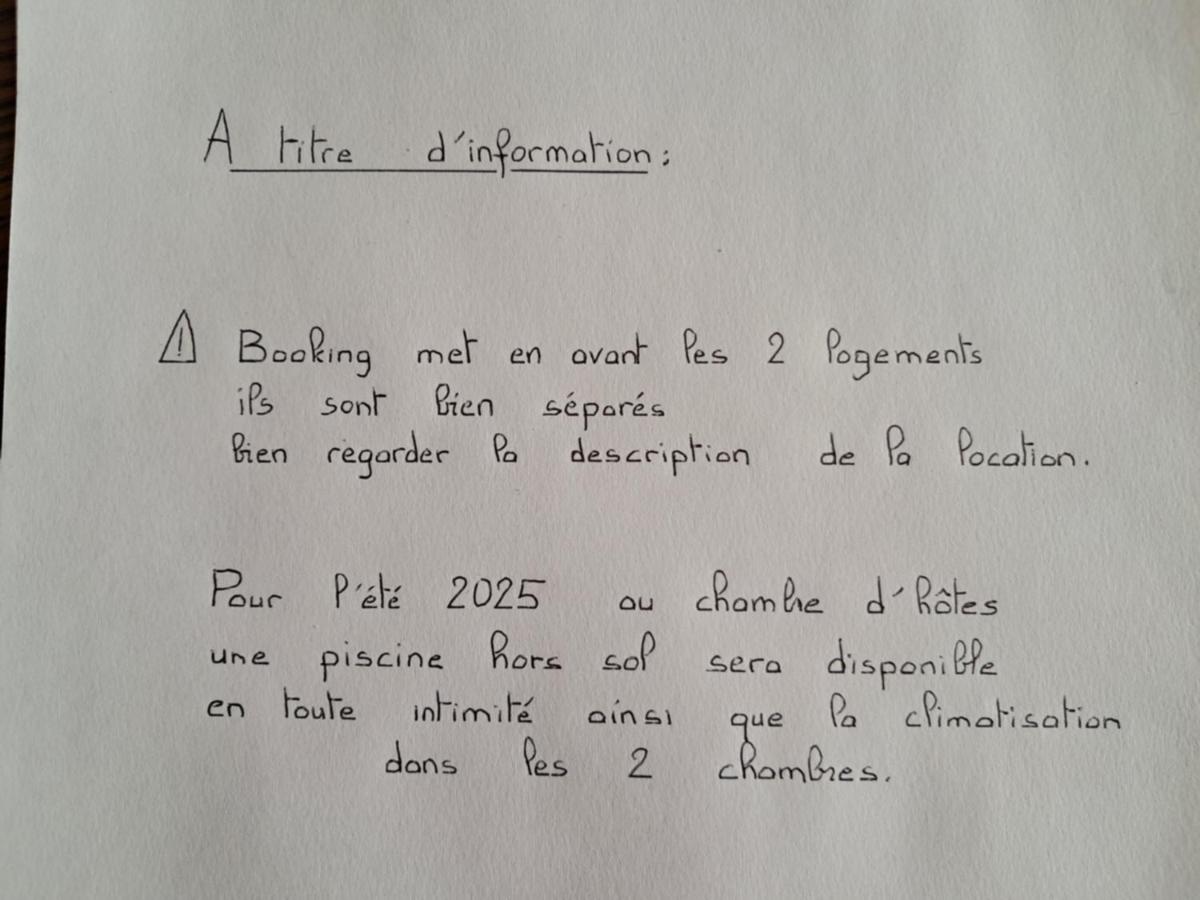 A titre d'information :
⚠ Booking met en avant les 2 logements
ils sont bien séparés
bien regarder la description de la location.
Pour l'été 2025 ou chambre d'hôtes
une piscine hors sol sera disponible
en toute intimité ainsi que la climatisation
dans les 2 chambres.